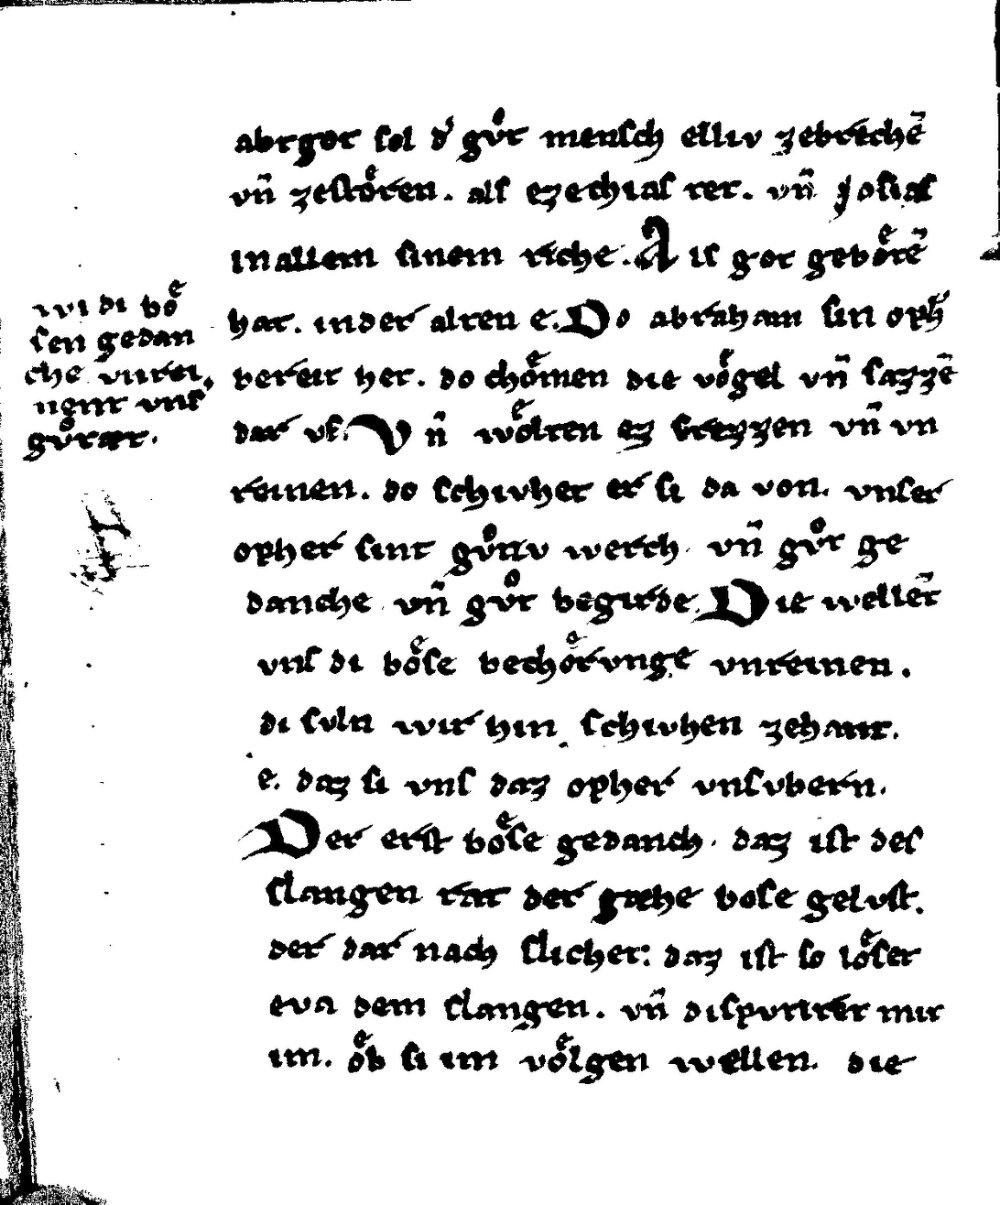 abtgot sol d' gůt mensch elliv zebrechē
vn̄ zestoͤren. als ezechias tet. vn̄ Josias
in allem sinem riche. Als got geboͤtē
hat. in der alten e. Do abraham sin oph͛
bereit het. do choͤmen die voͤgel vn̄ sazzē
dar vf. Vn̄ woͤlten ez frezzen vn̄ vn
reinen. do schivhet er si da von. vnser
opher sint gůttv werch. vn̄ gůt ge
danche vn̄ gůt begirde. Die wellēt
vns di boͤse bechoͤrvnge vnreinen.
di svln wir hin schivhen zehant.
e. daz si vns daz opher vnsvbern.
Der erst boͤse gedanch. daz ist des
slangen rat der gæhe bose gelvst.
der dar nach slichet: daz ist so loͤset
eva dem slangen. vn̄ dispvtirt mit
im. oͤb si im voͤlgen wellen. die
wi di boͤ
sen gedan
che vnrei,
nent vns
gůtæt.